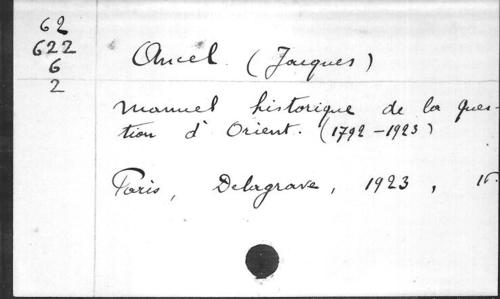 62
622
6
2
Ancel (Jacques)
Manuel historique de la Ques-
tion d'Orient. (1792-1923)
Paris, Delagrave, 1923,